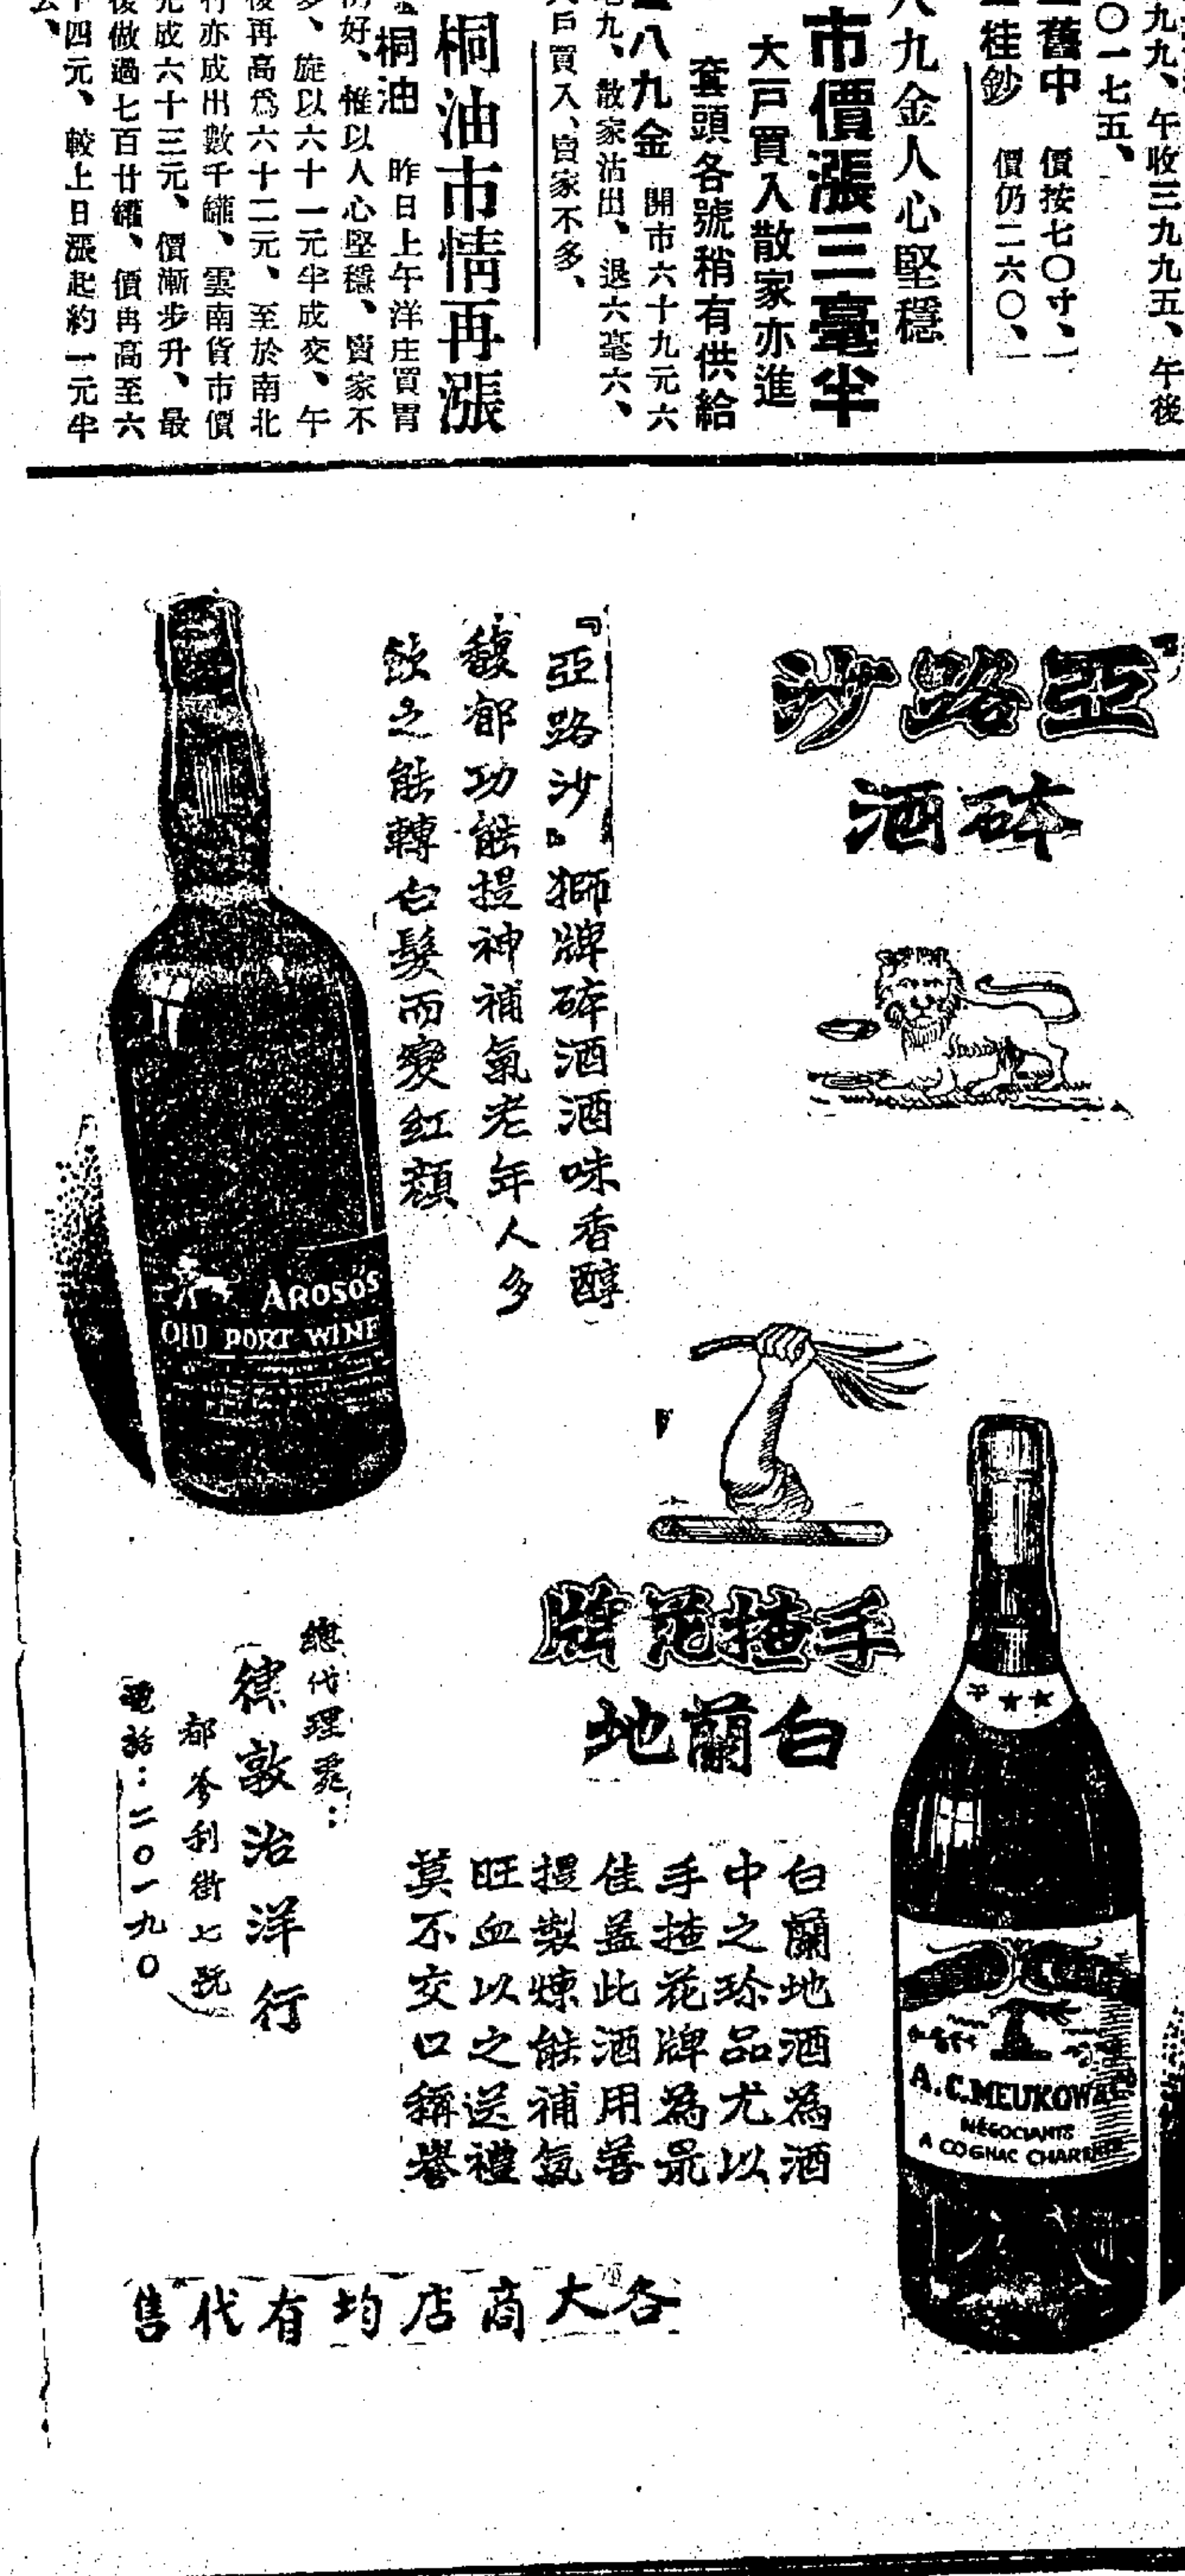 九九、午收三九九五、午後
〇一七五、
舊中 價按七〇寸、
桂鈔 價仍二六〇、
八九金人心堅穩
市價漲三毫半
大戶買入散家亦進
套頭各號稍有供給
八九金 開市六十九元六
九、散家沽出、退六毫六、
戶買入、賣家不多、
桐油市情再漲
桐油 昨日上午洋庄買胃
好、惟以人心堅穩、賣家不
、旋以六十一元半成交、午
後再高爲六十二元、至於南北
行亦成出數千罐、雲南貨市價
成六十三元、價漸步升、最
後做過七百廿罐、價再高至六
十四元、較上日漲起約一元半
亞路沙
砵酒
『亞路沙』獅牌砵酒酒味香醇
馥郁功能提神補氣老年人多
飲之能轉白髮而變紅顏
AROSO'S
OLD PORT WINE
手揸花牌
白蘭地
白蘭地酒為酒
中之珍品尤以
手揸花牌為最
佳蓋此酒用善
提製煉能補氣
旺血以之送禮
莫不交口稱譽
A.C.MEUKOW
NÉGOCIANTS
A COGNAC CHARENTE
總代理處：
德敦治洋行
都爹利街七號
電話：二〇一九〇
各大商店均有代售